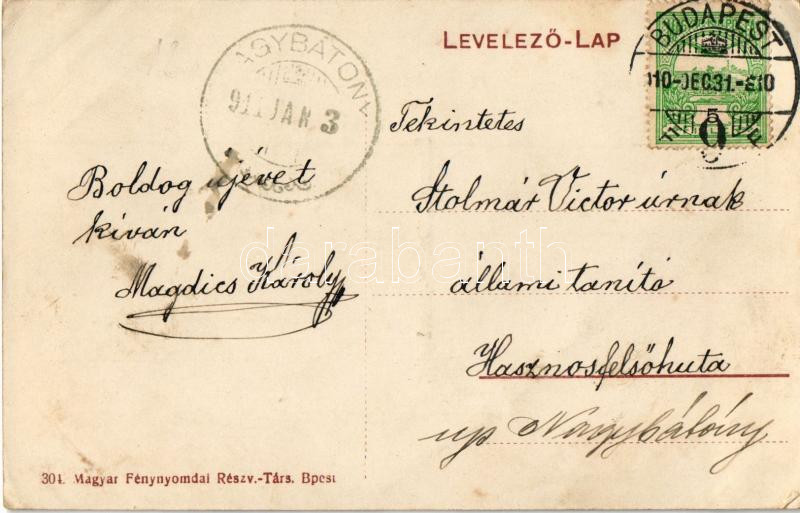 LEVELEZŐ-LAP
BUDAPEST
910-DEC.31.-
5
9
NAGYBÁTONY
911 JAN 3
Tekintetes
Stolmár Victor úrnak
állami tanító
Hasznosfelsőhuta
up Nagybátony
Boldog újévet
kíván
Magdics Károly
darabanth
301. Magyar Fénynyomdai Részv.-Társ. Bpest